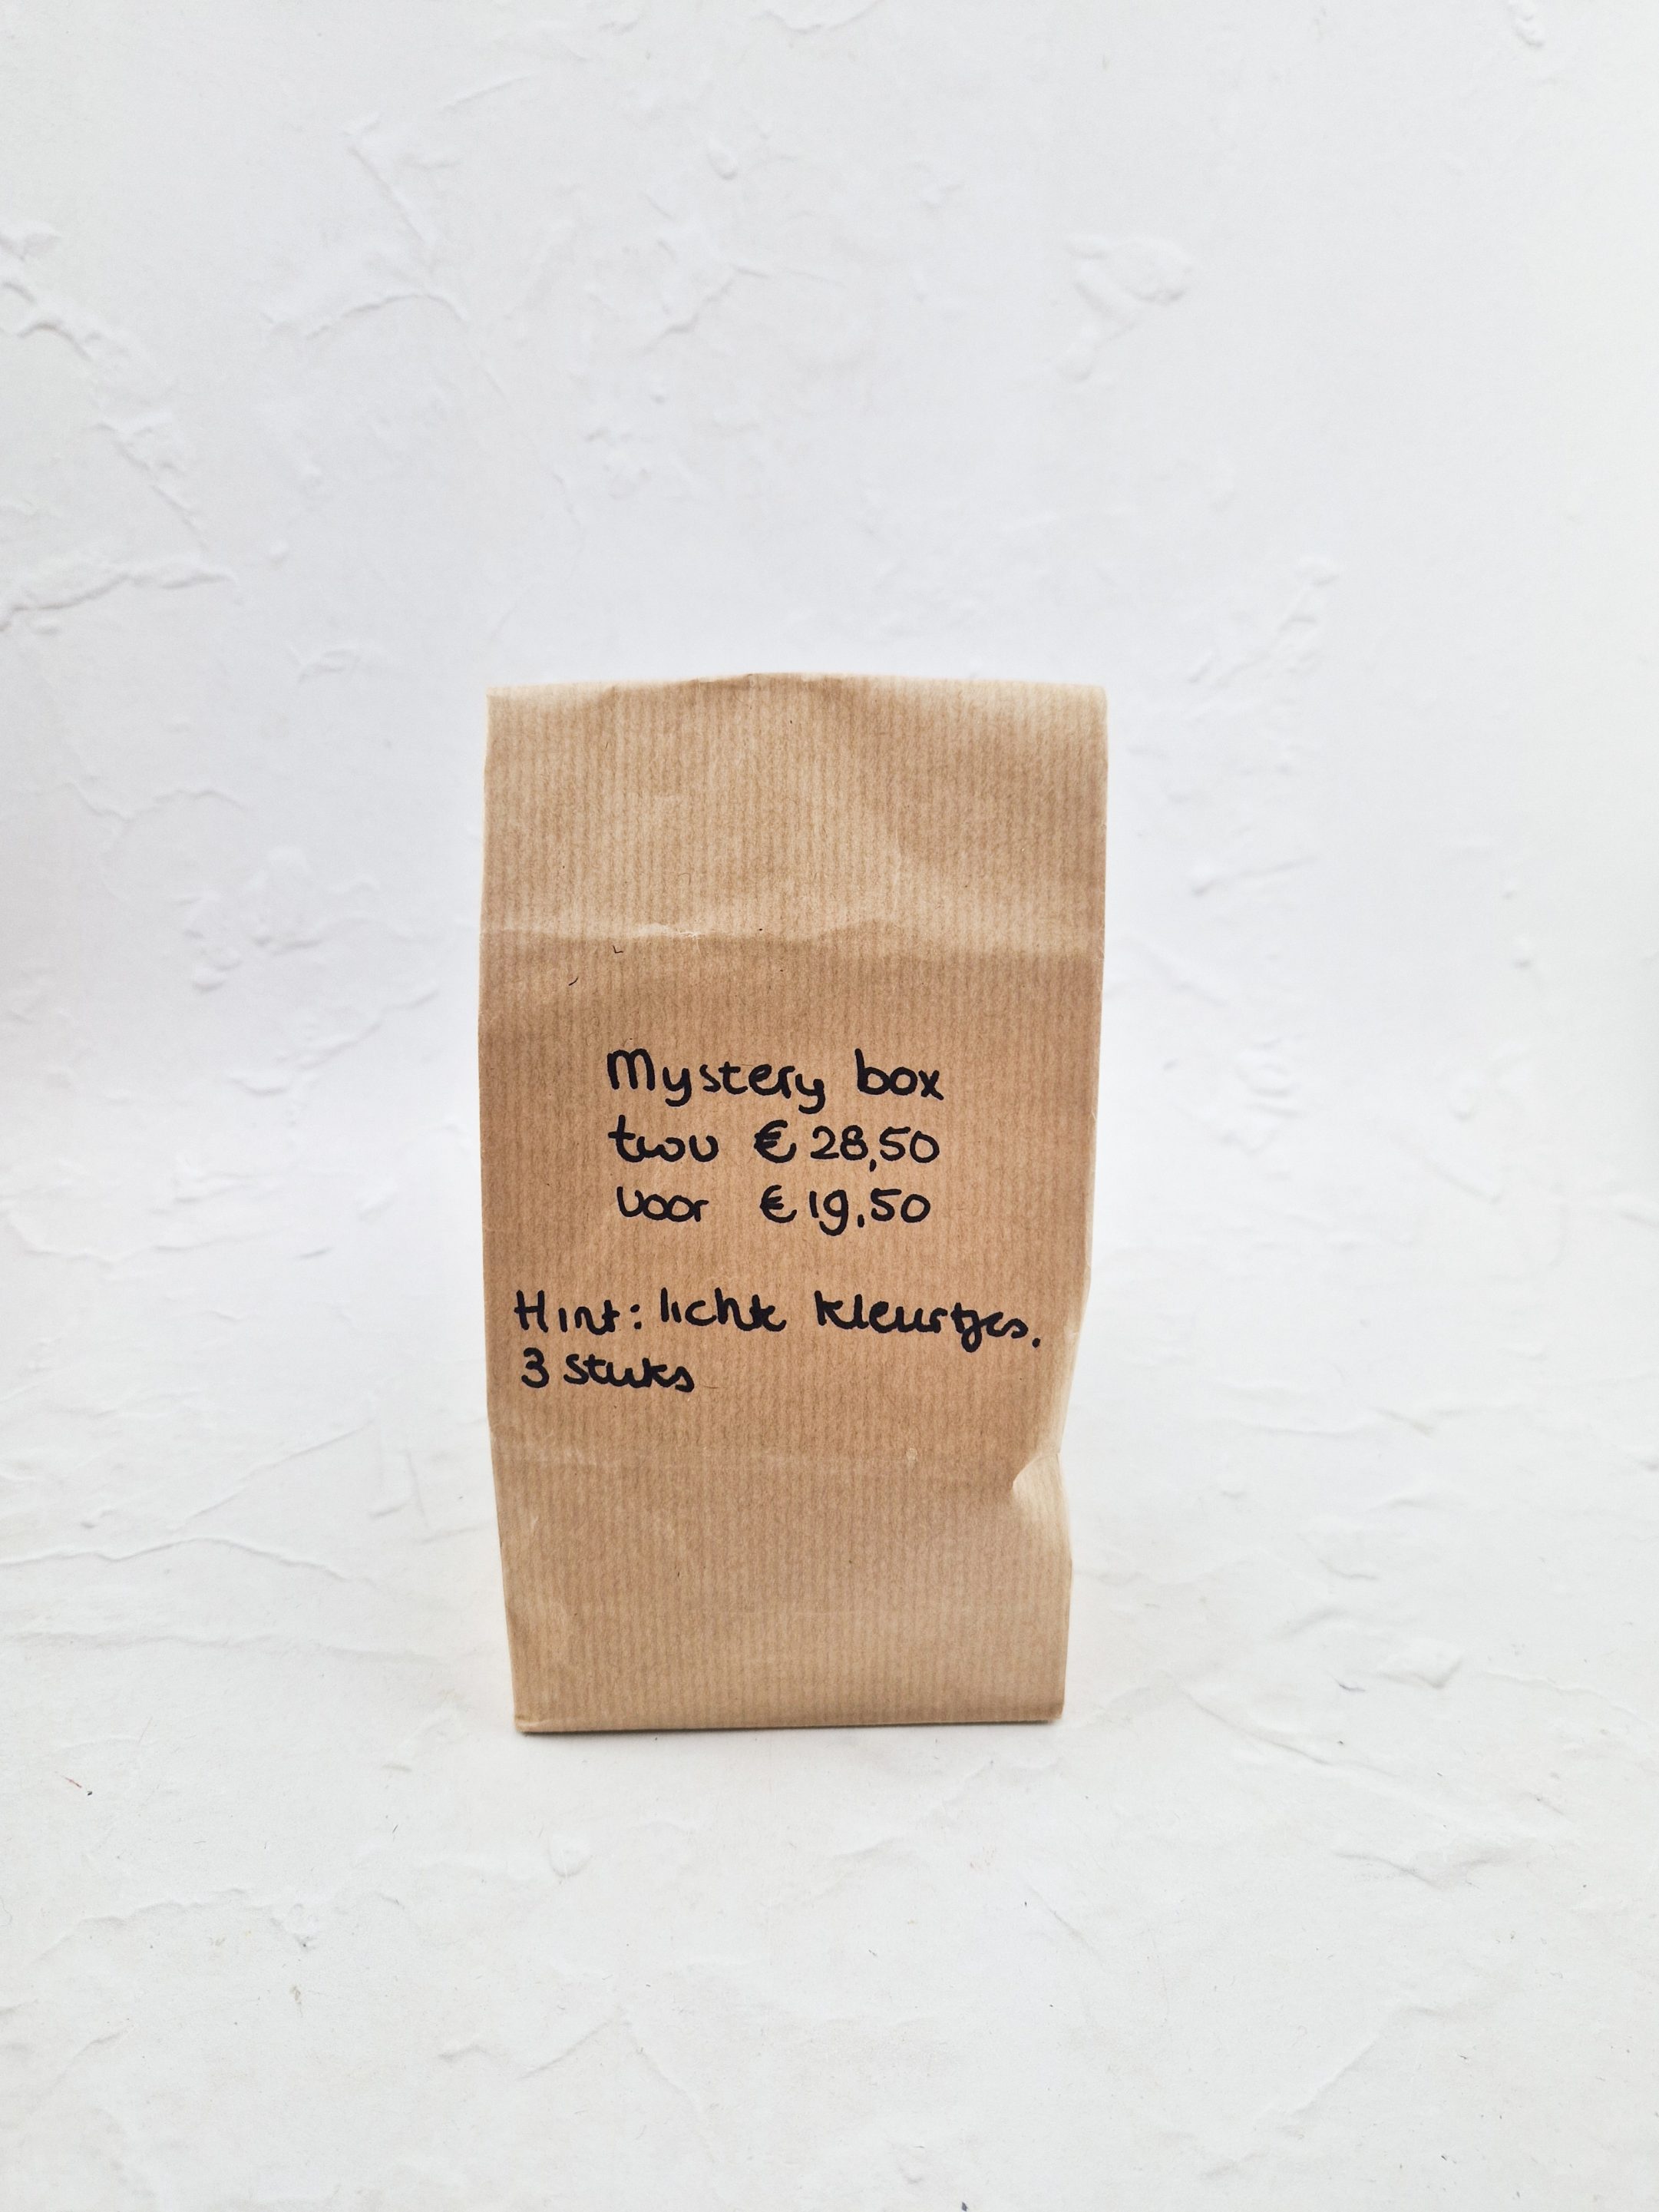 Mystery box
twv € 28,50
voor € 19,50
Hint: lichte kleurtjes.
3 stuks